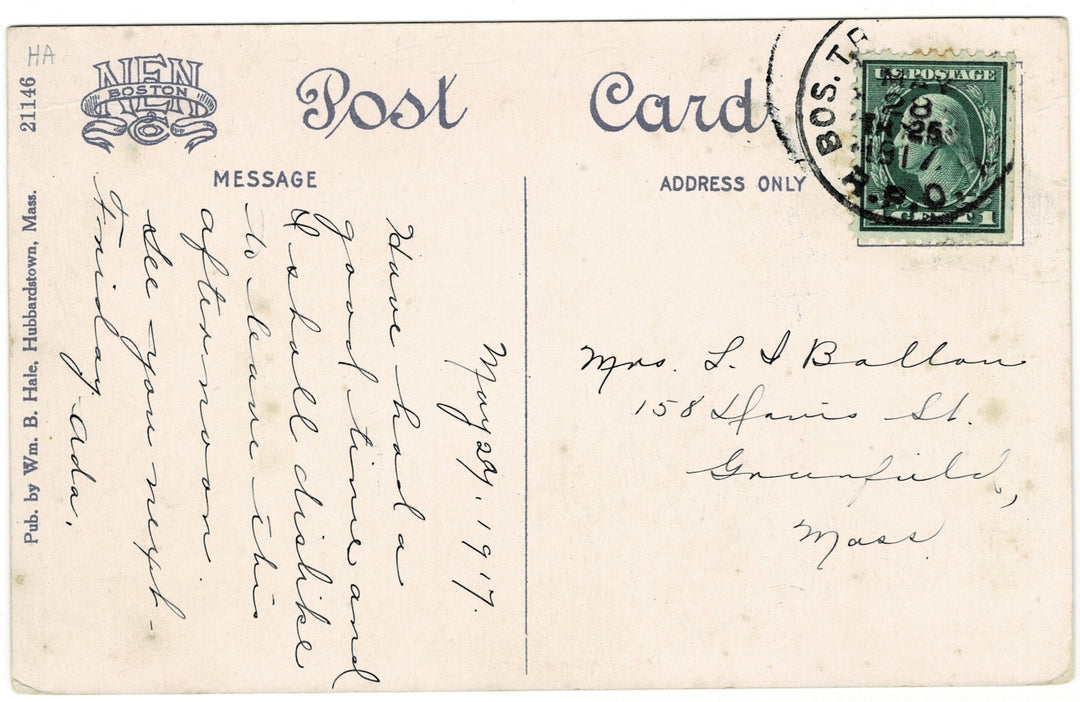 HA
NEN
BOSTON
NEN
Post Card
21146
Pub. by Wm. B. Hale, Hubbardstown, Mass.
MESSAGE
ADDRESS ONLY
BOS.
R.P.O.
MAY
28
1917
U.S. POSTAGE
1 CENT 1
May 29, 1917.
Have had a
good time and
I shall dislike
to leave this
afternoon.
See you next-
Friday.
Ada.
Mrs. L. I Ballou
158 Davis St.
Greenfield,
Mass.